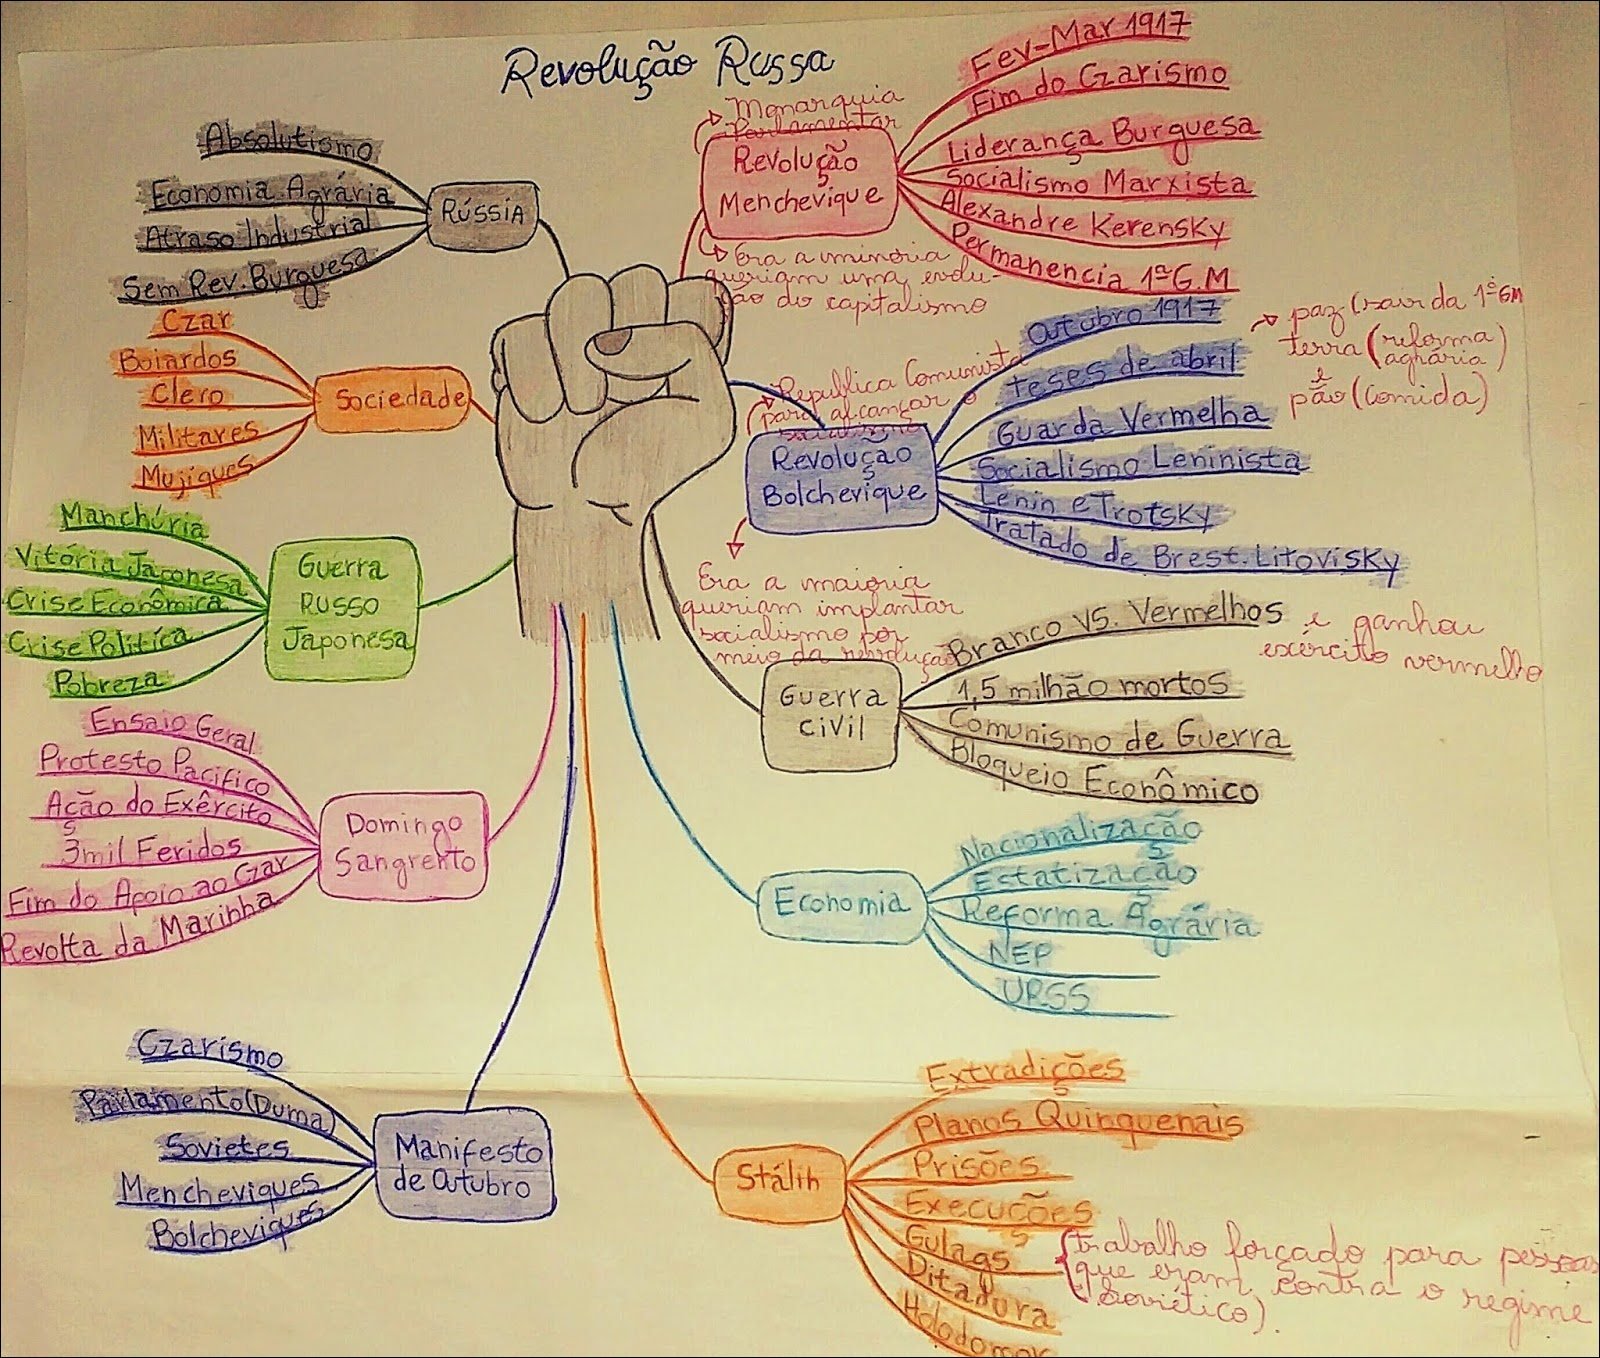 Revolução Russa
Absolutismo
Economia Agrária
Atraso Industrial
Sem Rev. Burguesa
RÚSSIA
Czar
Boiardos
Clero
Militares
Mujiques
Sociedade
Manchúria
Vitória Japonesa
Crise Econômica
Crise Política
Pobreza
Guerra
Russo
Japonesa
Ensaio Geral
Protesto Pacífico
Ação do Exército
3mil Feridos
Fim do Apoio ao Czar
Revolta da Marinha
Domingo
Sangrento
Czarismo
Parlamento(Duma)
Sovietes
Mencheviques
Bolcheviques
Manifesto
de Outubro
Monarquia
Parlamentar
Revolução
Menchevique
Era a minoria
queriam uma evolu-
ção do capitalismo
Fev-Mar 1917
Fim do Czarismo
Liderança Burguesa
Socialismo Marxista
Alexandre Kerensky
Permanencia 1ªG.M
República Comunista
para alcançar o
socialismo
Revolução
Bolchevique
Era a maioria
queriam implantar
socialismo por
meio da revolução
Outubro 1917
teses de abril
paz (sair da 1ªGM
terra (reforma
agrária)
e
pão (comida)
Guarda Vermelha
Socialismo Leninista
Lenin e Trotsky
Tratado de Brest.Litovisky
Guerra
Civil
Branco vs. Vermelhos
e ganhou
exército vermelho
1,5 milhão mortos
Comunismo de Guerra
Bloqueio Econômico
Economia
Nacionalização
Estatização
Reforma Agrária
NEP
URSS
Stálin
Extradições
Planos Quinquenais
Prisões
Execuções
Gulags
(trabalho forçado para pessoas
que eram contra o regime
soviético).
Ditadura
Holodomor